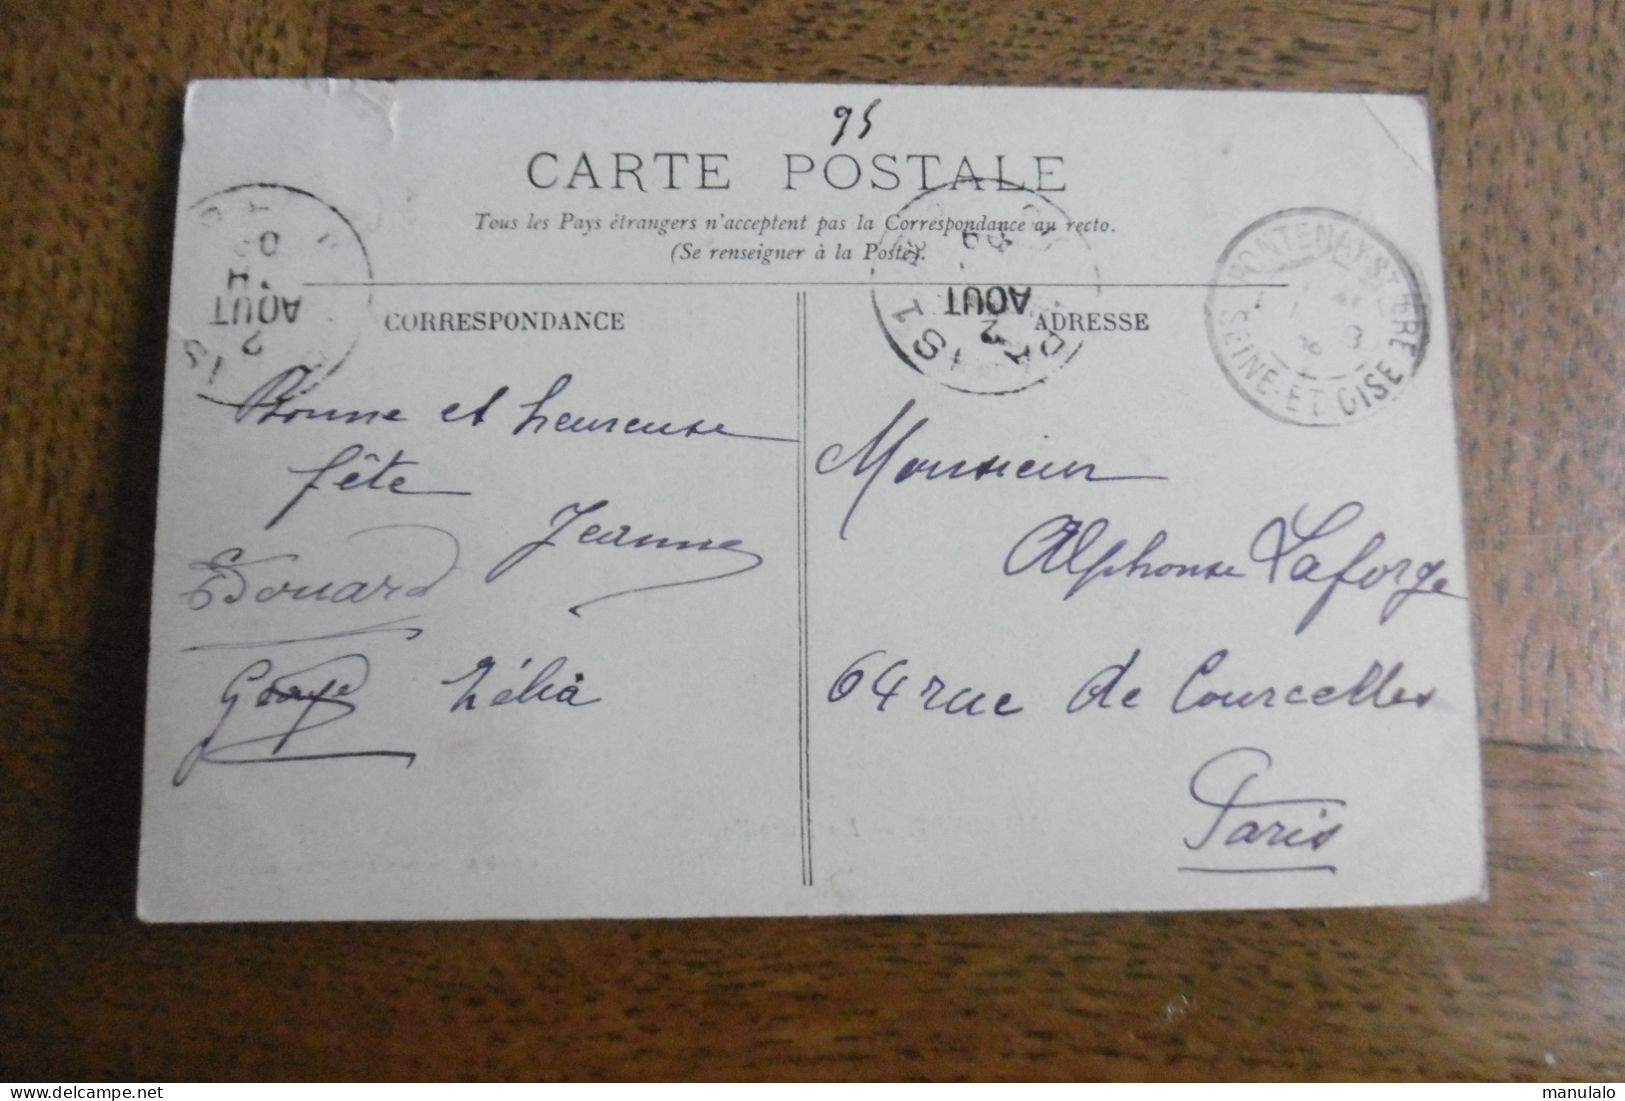 95
CARTE POSTALE
Tous les Pays étrangers n'acceptent pas la Correspondance au recto.
(Se renseigner à la Poste).
CORRESPONDANCE
ADRESSE
AOUT
AOUT
SEINE-ET-OISE
Bonne et heureuse
fête
Jeanne
Edouard
Zélia
Monsieur
Alphonse Laforge
64 rue de Courcelles
Paris
www.delcampe.net
manulalo